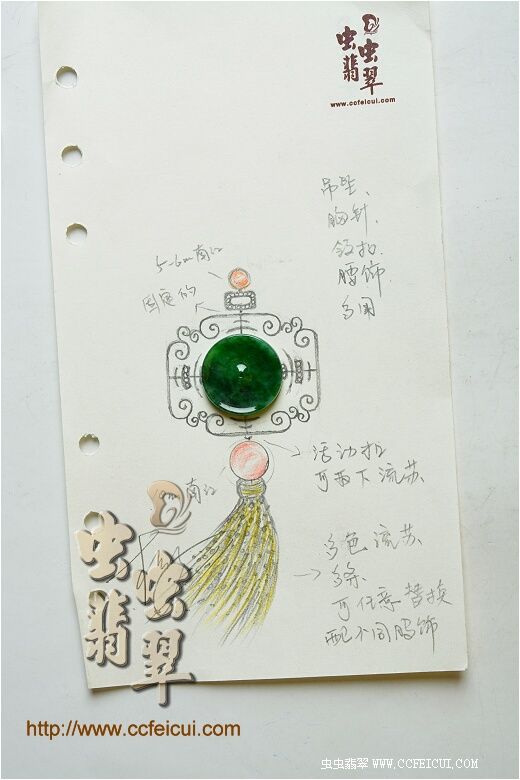 虫虫
翡翠
www.ccfeicui.com
吊坠、
胸针、
领扣、
腰饰
多用
5-6m南红
固定的
活动扣
可取下流苏、
南红
多色流苏、
多条
可任意替换
配不同服饰
虫虫
翡翠
http://www.ccfeicui.com
虫虫翡翠 WWW.CCFEICUI.COM